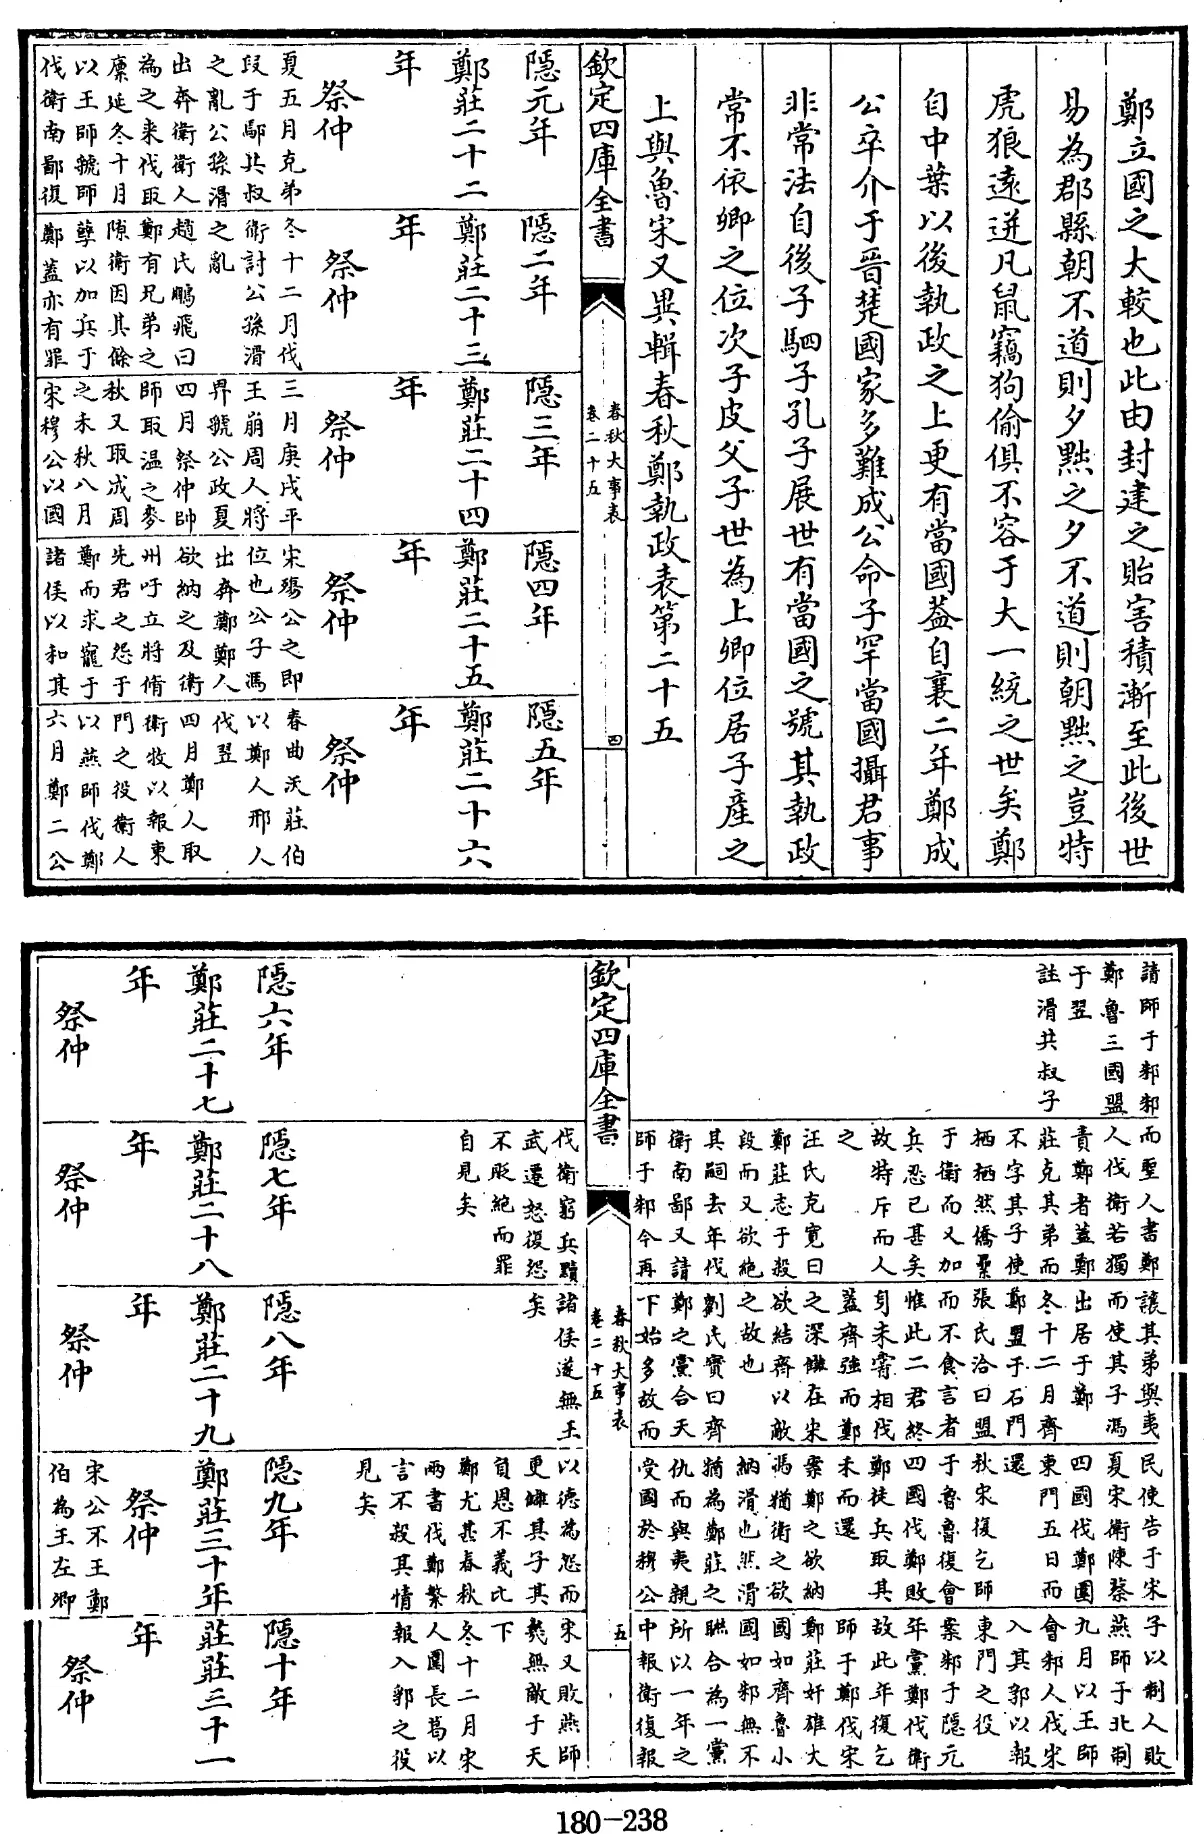 鄭立國之大較也此由封建之貽害積漸至此後世
易為郡縣朝不道則夕黜之夕不道則朝黜之豈特
虎狼遠迸凡鼠竊狗偷俱不容于大一統之世矣鄭
自中葉以後執政之上更有當國葢自襄二年鄭成
公卒介于晉楚國家多難成公命子罕當國攝君事
非常法自後子駟子孔子展世有當國之號其執政
常不依卿之位次子皮父子世為上卿位居子產之
上與魯宋又異輯春秋鄭執政表第二十五
欽定四庫全書
春秋大事表
卷二十五
四
隱元年
鄭莊二十二
年
祭仲
夏五月克弟
段于鄢共叔
之亂公孫滑
出奔衛衛人
為之來伐取
廩延冬十月
以王師虢師
伐衛南鄙復
隱二年
鄭莊二十三
年
祭仲
冬十二月伐
衛討公孫滑
之亂
趙氏鵬飛曰
鄭有兄弟之
隙衛因其餘
孽以加兵于
鄭葢亦有罪
隱三年
鄭莊二十四
年
祭仲
三月庚戌平
王崩周人將
畀虢公政夏
四月祭仲帥
師取溫之麥
秋又取成周
之禾秋八月
宋穆公以國
隱四年
鄭莊二十五
年
祭仲
宋殤公之即
位也公子馮
出奔鄭鄭人
欲納之及衛
州吁立將脩
先君之怨于
鄭而求寵于
諸侯以和其
隱五年
鄭莊二十六
年
祭仲
春曲沃莊伯
以鄭人邢人
伐翌
四月鄭人取
衛牧以報東
門之役衛人
以燕師伐鄭
六月鄭二公
請師于邾邾
鄭魯三國盟
于翌
註滑共叔子
而聖人書鄭
人伐衛若獨
責鄭者葢鄭
莊克其弟而
不字其子使
栖栖然僑蘽
于衛而又加
兵忍已甚矣
故特斥而人
之
汪氏克寛曰
鄭莊志于殺
段而又欲絶
其嗣去年伐
衛南鄙又請
師于邾今再
讓其弟與夷
而使其子馮
出居于鄭
冬十二月齊
鄭盟于石門
張氏洽曰盟
而不食言者
惟此二君終
身未嘗相伐
葢齊強而鄭
之深讎在宋
欲結齊以敵
之故也
劉氏實曰齊
鄭之黨合天
下始多故而
民使告于宋
夏宋衛陳蔡
四國伐鄭圍
東門五日而
還
秋宋復乞師
于魯魯復會
四國伐鄭敗
鄭徒兵取其
禾而還
案鄭之欲納
馮猶衛之欲
納滑也然滑
猶為鄭莊之
仇而與夷親
受國於穆公
子以制人敗
燕師于北制
九月以王師
會邾人伐宋
入其郛以報
東門之役
案邾于隱元
年黨鄭伐衛
故此年復乞
師于鄭伐宋
鄭莊奸雄大
國如齊魯小
國如邾無不
聯合為一黨
所以一年之
中報衛復報
欽定四庫全書
春秋大事表
卷二十五
五
伐衛窮兵黷
武遷怒復怨
不貶絶而罪
自見矣
諸侯遂無王
矣
以德為怨而
更讎其子其
負恩不義比
鄭尤甚春秋
兩書伐鄭繁
言不殺其情
見矣
宋又敗燕師
㡬無敵于天
下
冬十二月宋
人圍長葛以
報入郛之役
隱六年
鄭莊二十七
年
祭仲
隱七年
鄭莊二十八
年
祭仲
隱八年
鄭莊二十九
年
祭仲
隱九年
鄭莊三十年
祭仲
宋公不王鄭
伯為王左卿
隱十年
莊莊三十一
年
祭仲
180-238